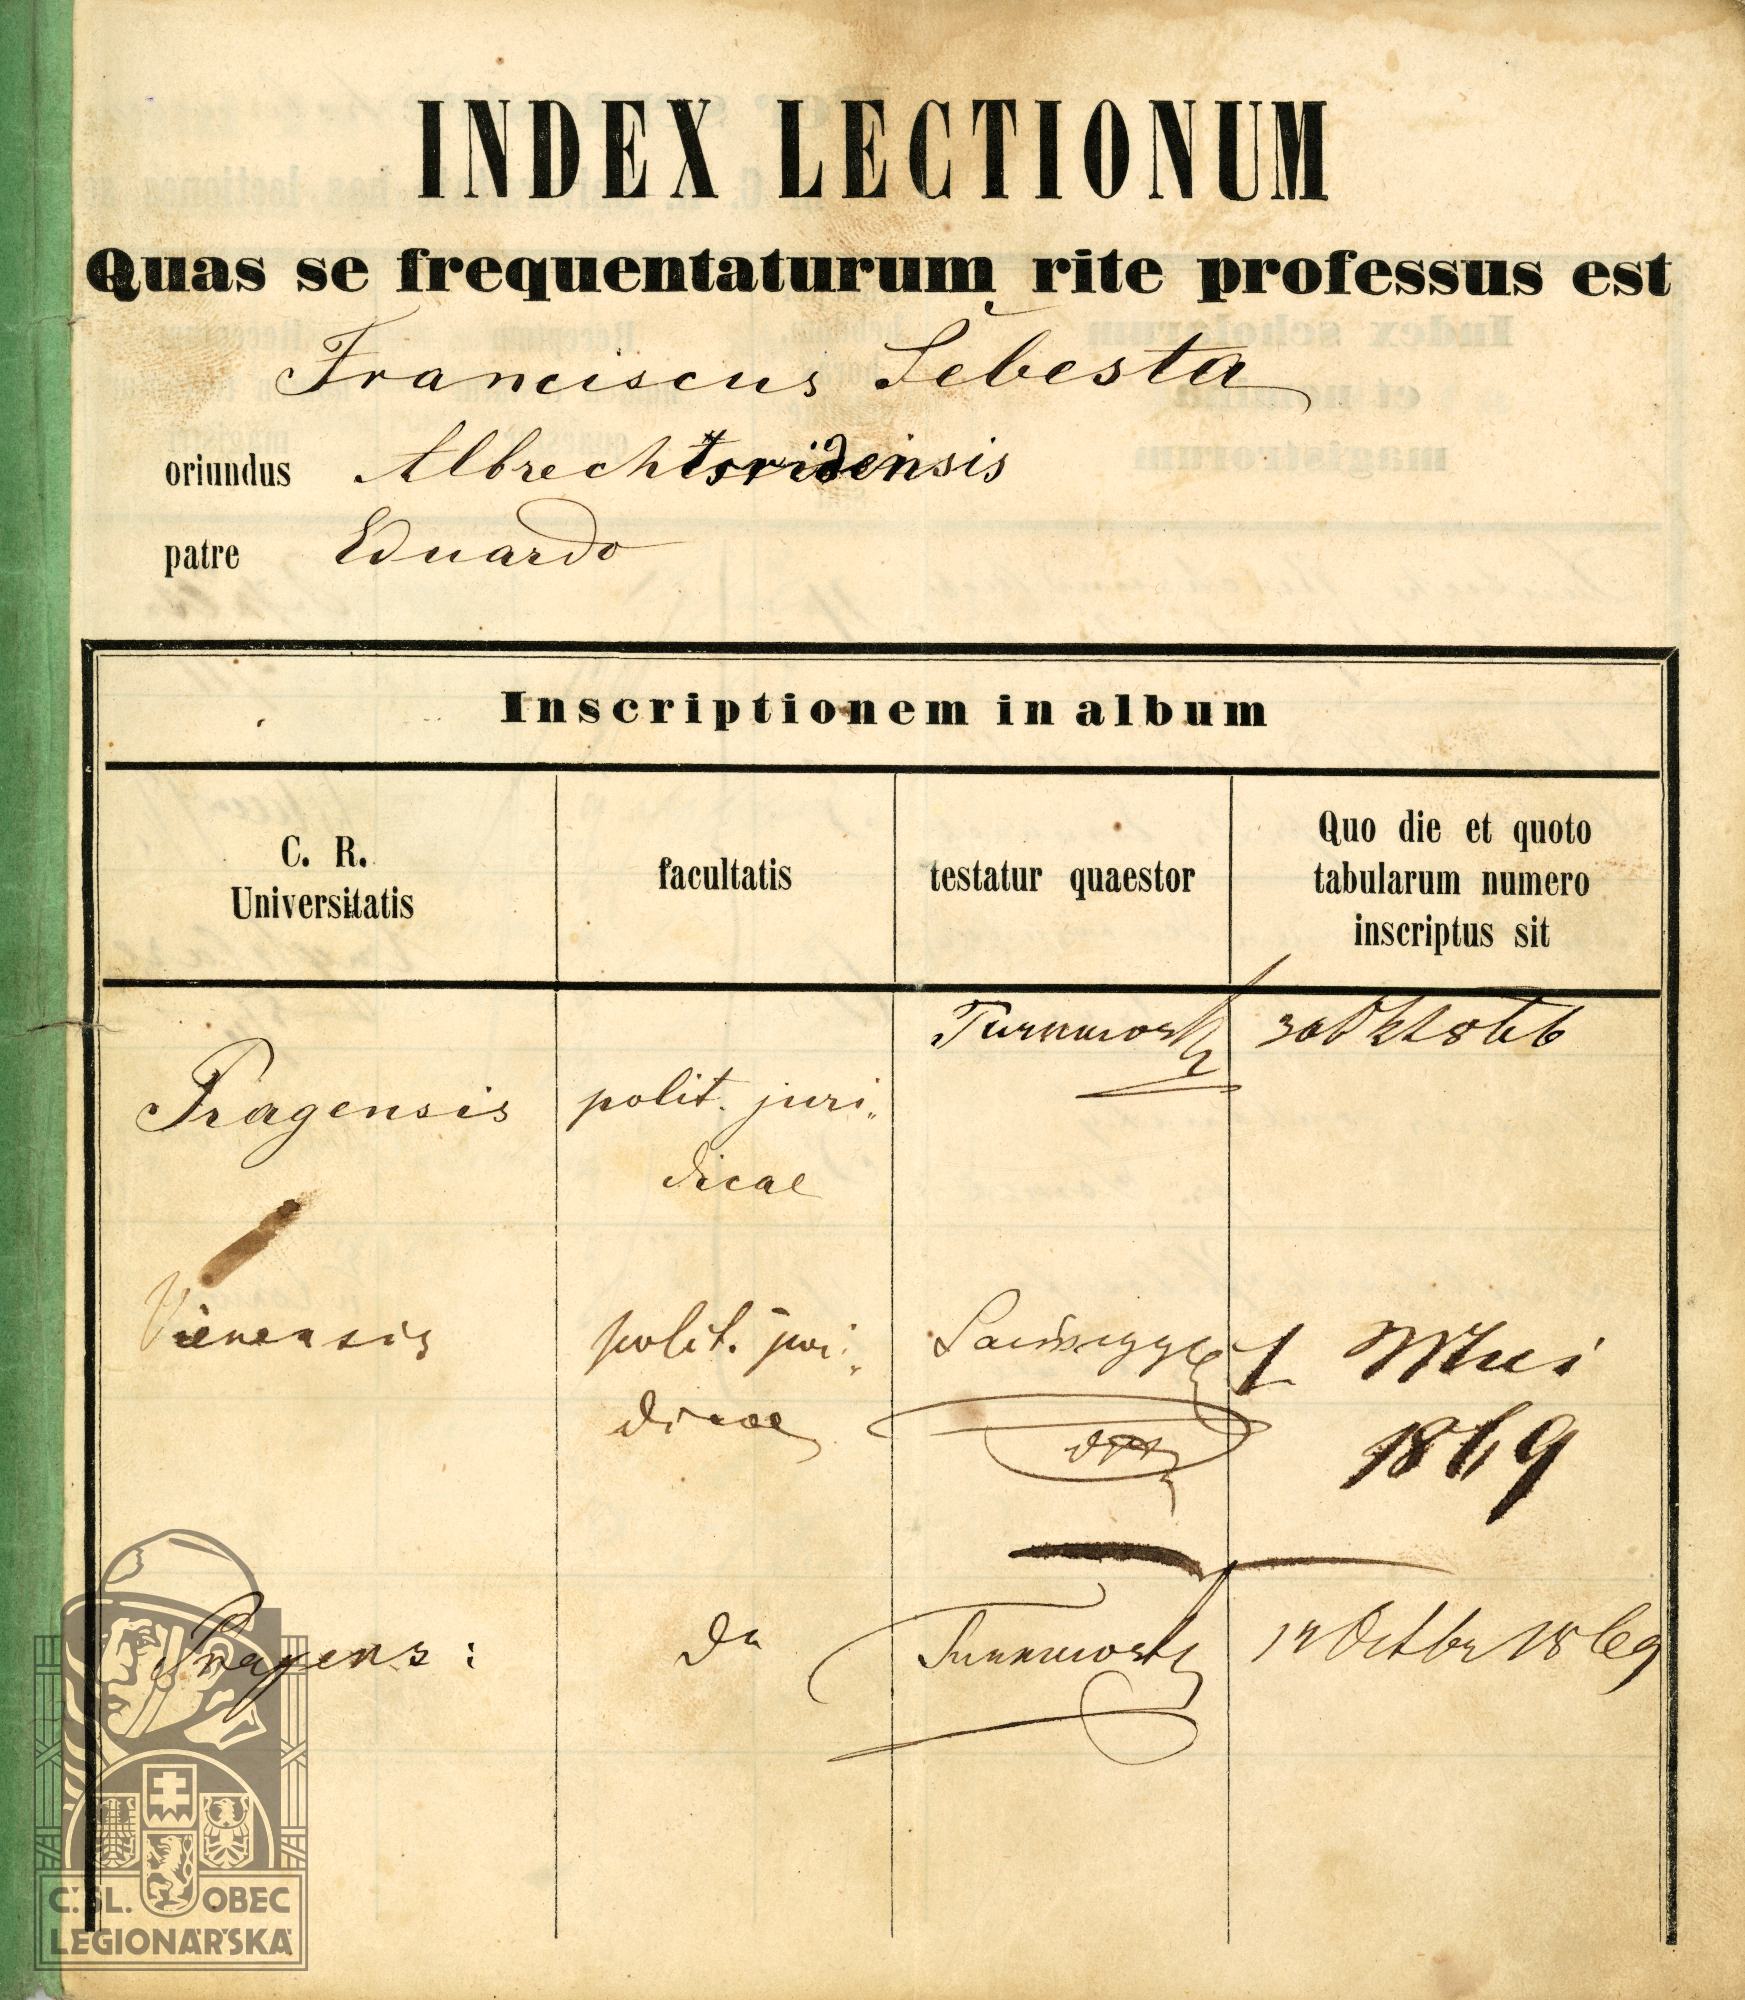 INDEX LECTIONUM
Quas se frequentaturum rite professus est
Franciscus Šebesta
oriundus
patre Eduardo
Inscriptionem in album
C. R.
Universitatis
facultatis
testatur quaestor
Quo die et quoto
tabularum numero
inscriptus sit
Pragensis
polit. juri„
dicae
Vienensis
polit. juri„
dicae
1 Mai
1869
Pragens:
do
Octbr 1869
Č.SL. OBEC
LEGIONÁŘSKÁ